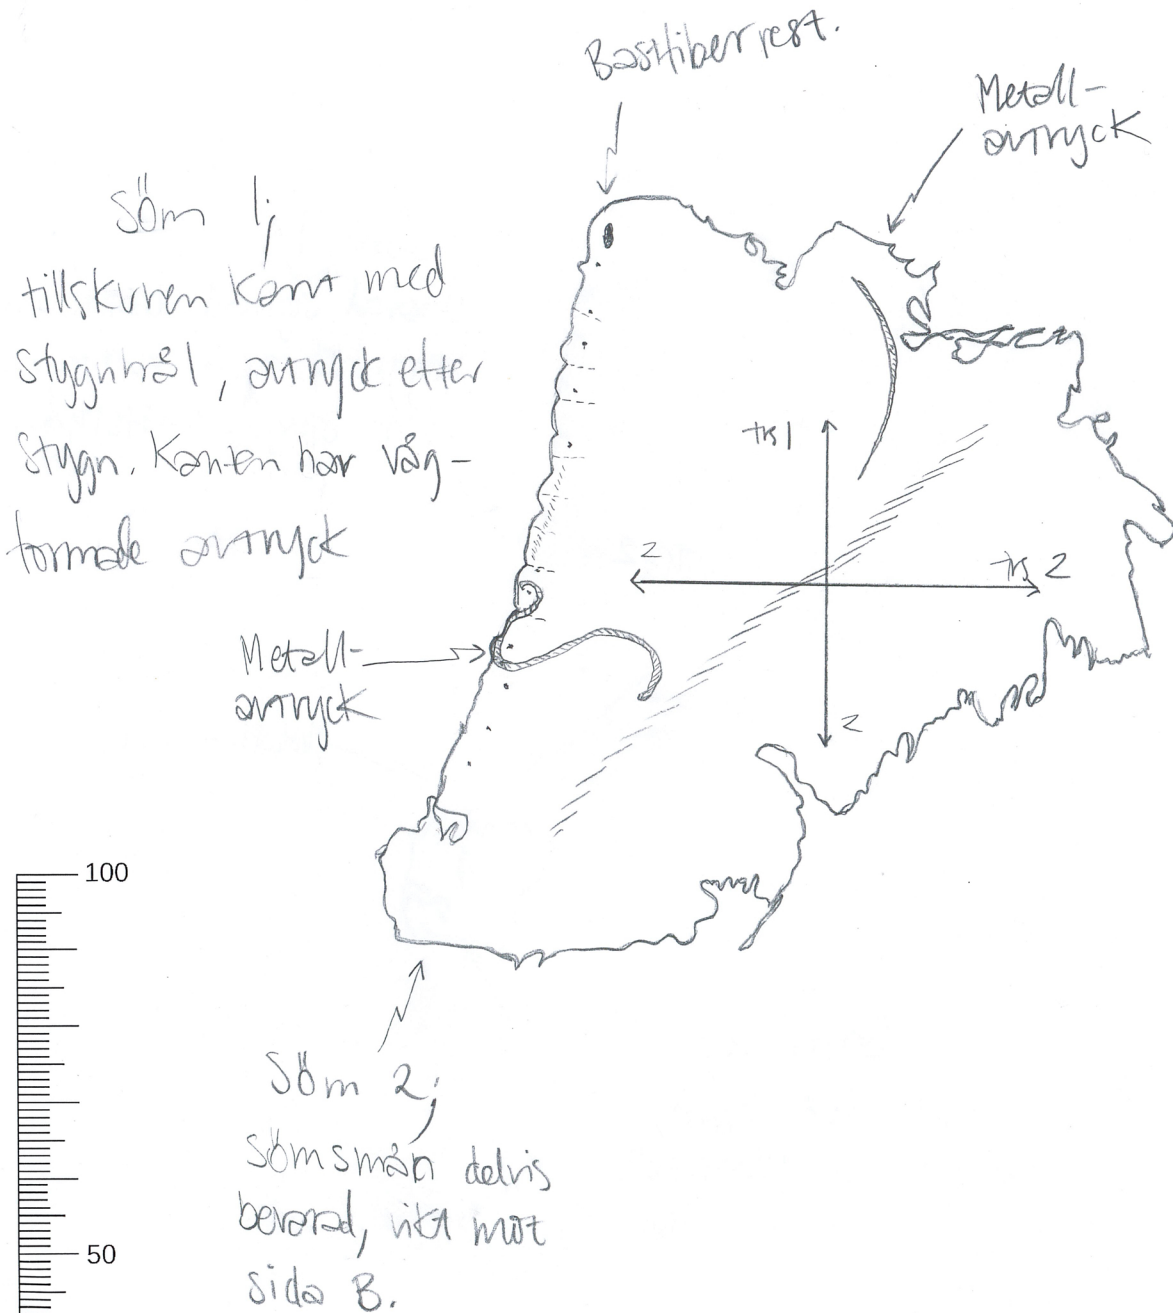 Bastfiberrest.
Metall-
avtryck
Söm 1;
tillskuren kant med
stygnhål, avtryck efter
stygn. Kanten har våg-
formade avtryck
trs 1
z
trs 2
Metall-
avtryck
z
100
Söm 2;
sömsmån delvis
bevarad, vikt mot
50
sida B.